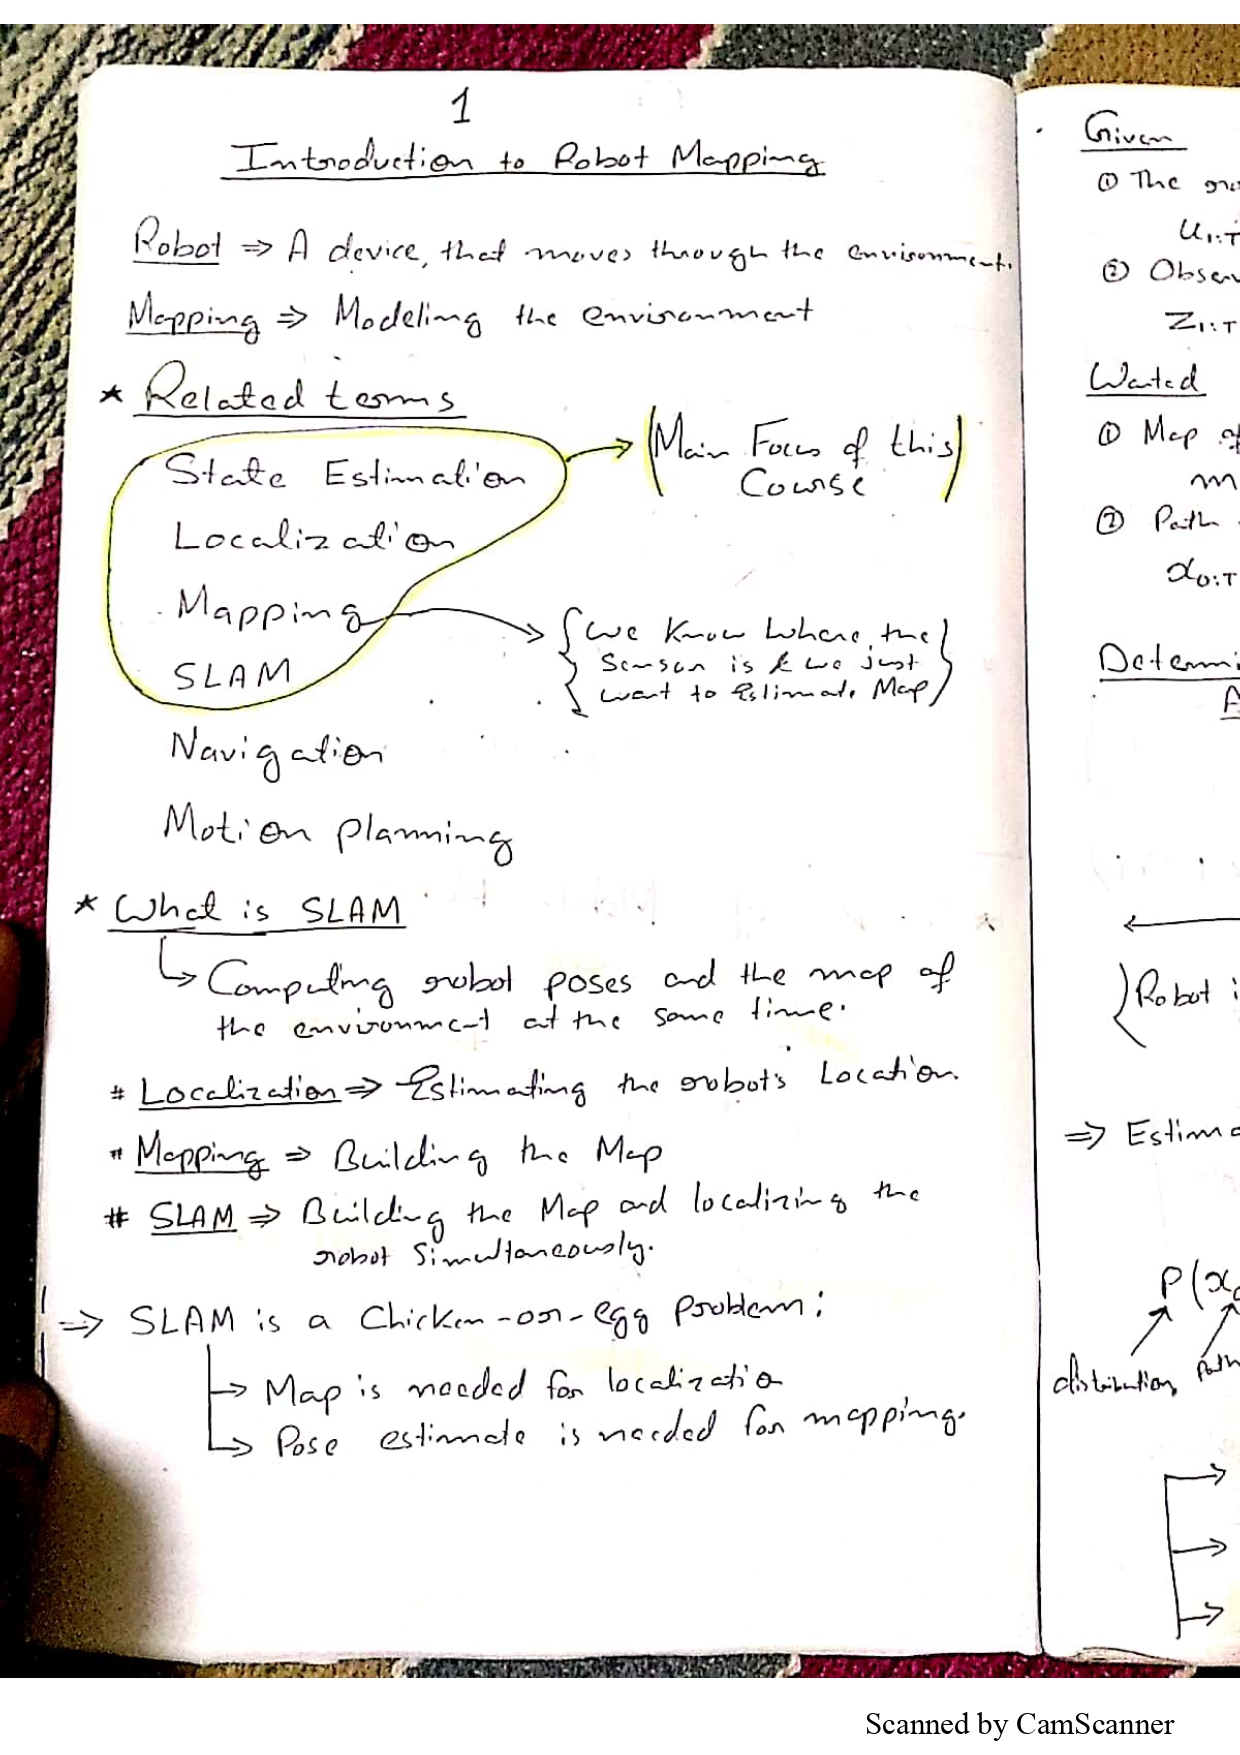 1
Introduction to Robot Mapping
Robot ⇒ A device, that moves through the environment.
Mapping ⇒ Modeling the environment
* Related terms
State Estimation
Localization
Mapping
SLAM
(Main Focus of this
Course)
{we know where the
sensor is & we just
want to Estimate Map}
Navigation
Motion planning
* What is SLAM
↳ Computing robot poses and the map of
the environment at the same time.
# Localization ⇒ Estimating the robot's Location.
# Mapping ⇒ Building the Map
# SLAM ⇒ Building the Map and localizing the
robot Simultaneously.
⇒ SLAM is a Chicken-or-egg Problem:
→ Map is needed for localization
→ Pose estimate is needed for mapping.
Given
① The
u1:T
② Obser
Z1:T
Wanted
① Map of
m
② Path
x0:T
Determi
Robot i
⇒ Estima
P(x
distribution, Path
Scanned by CamScanner